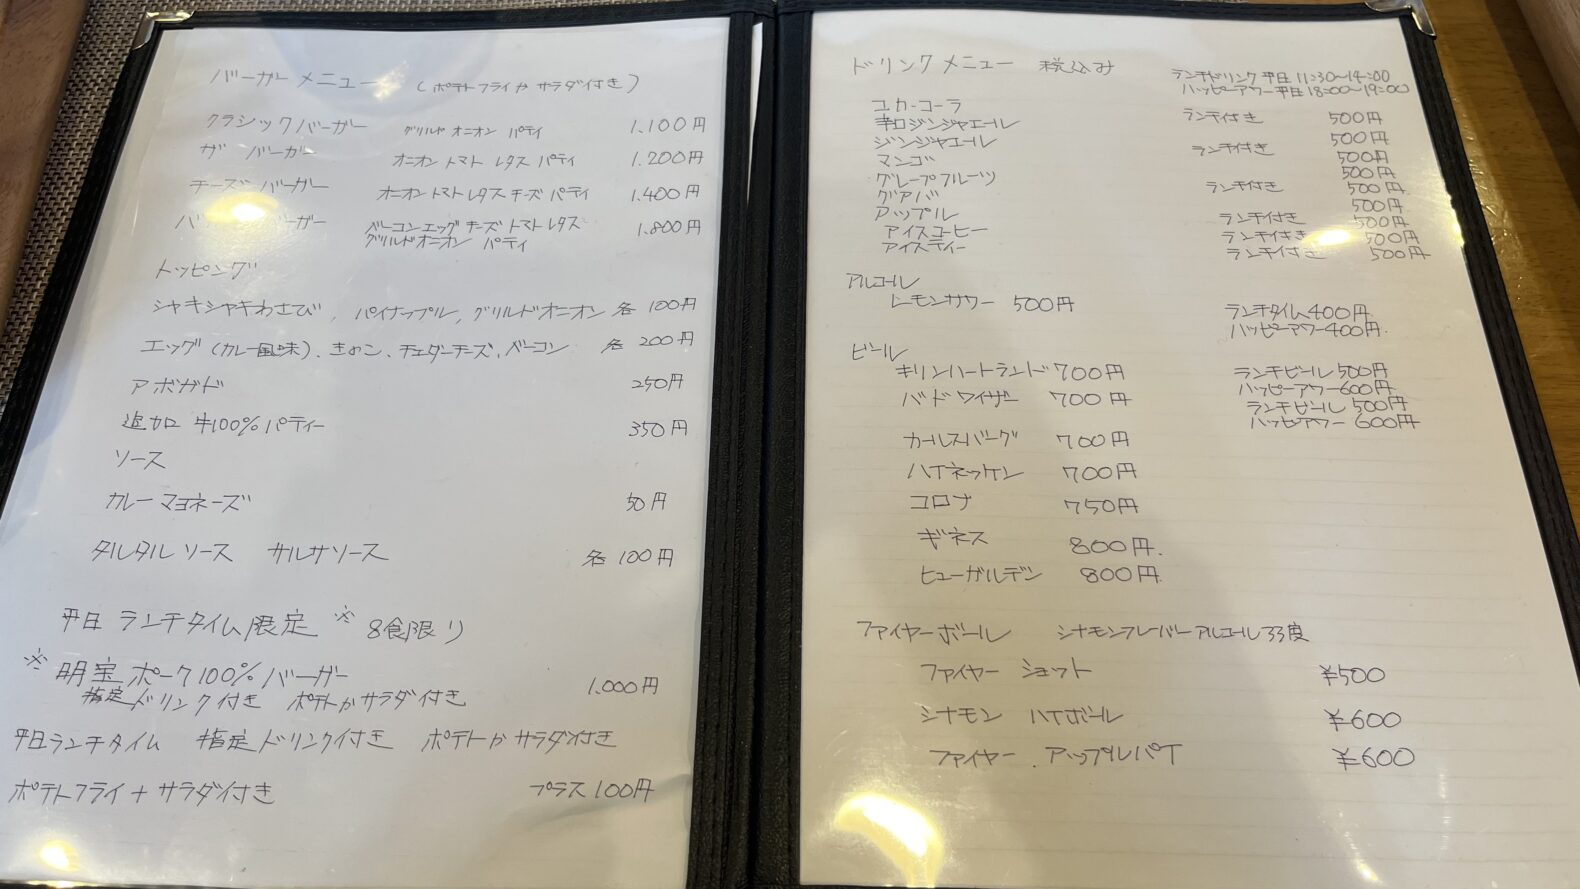 バーガー メニュー （ポテトフライか サラダ付き）
クラシックバーガー グリルド オニオン パティ 1.100円
ザ バーガー オニオン トマト レタス パティ 1.200円
チーズ バーガー オニオン トマト レタス チーズ パティ 1.400円
バーガー ベーコン エッグ チーズ トマト レタス 1.800円
グリルドオニオン パティ
トッピング
シャキシャキわさび , パイナップル , グリルドオニオン 各 100円
エッグ（カレー風味）、きのこ、チェダーチーズ、ベーコン 各 200円
アボガド 250円
追加 牛100%パティー 350円
ソース
カレーマヨネーズ 50円
タルタルソース サルサソース 各 100円
平日 ランチタイム限定 ※ 8食限り
※ 明宝 ポーク100%バーガー 1.000円
指定ドリンク付き ポテトかサラダ付き
平日ランチタイム 指定ドリンク付き ポテトかサラダ付き
ポテトフライ + サラダ付き プラス100円
ドリンク メニュー 税込み
ランチドリンク 平日 11:30〜14:00
ハッピーアワー 平日 18:00〜19:00
コカ・コーラ ランチ付き 500円
辛口ジンジャエール 500円
ジンジャエール ランチ付き 500円
マンゴ 500円
グレープフルーツ ランチ付き 500円
グアバ 500円
アップル ランチ付き 500円
アイスコーヒー ランチ付き 500円
アイスティー ランチ付き 500円
アルコール
レモンサワー 500円 ランチタイム400円
ハッピーアワー400円
ビール
キリンハートランド 700円 ランチビール 500円
ハッピーアワー600円
バドワイザー 700円 ランチビール 500円
ハッピーアワー 600円
カールスバーグ 700円
ハイネッケン 700円
コロナ 750円
ギネス 800円.
ヒューガルデン 800円
ファイヤーボール シナモンフレーバー アルコール33度
ファイヤー ショット ¥500
シナモン ハイボール ¥600
ファイヤー . アップルパイ ¥600